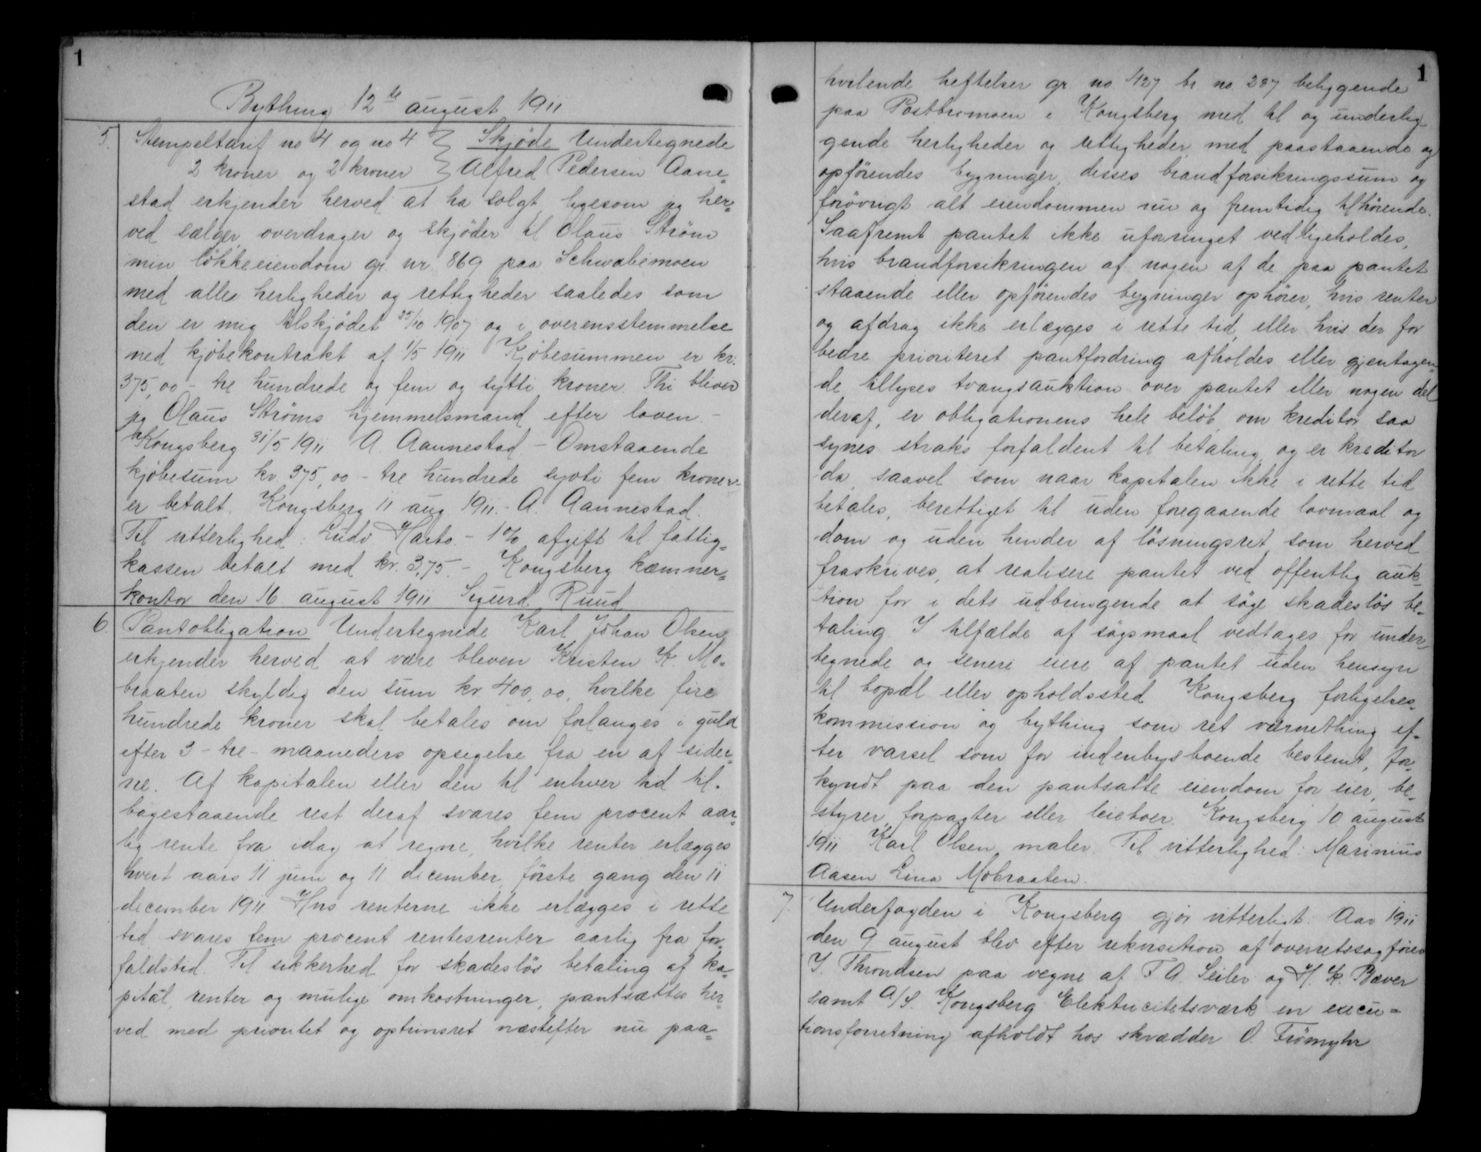 1
Bything 12te august 1911
5. Stempeltarif no 4 og no 4 } Skjöde Undertegnede
2 kroner og 2 kroner } Alfred Pedersen Aane-
stad erkjender herved at ha solgt ligesom jeg her-
ved sælger, overdrager og skjöder til Olaus Ström
min lökkeeiendom gr nr 869 paa Schwabemoen
med alle herligheder og rettigheder saaledes som
den er mig tilskjödet 25/10 1907 og i overensstemmelse
med kjöbekontrakt af 1/5 1911 Kjöbesummen er kr.
375,00 - tre hundrede og fem og sytti kroner Thi bliver
jeg Olaus Ströms hjemmelsmand efter loven -
Kongsberg 31/5 1911 A Aannestad - Omstaaende
kjöbesum kr 375,00 - tre hundrede sytti fem kroner -
er betalt. Kongsberg 11 aug 1911. - A. Aannestad.
Til vitterlighed: Ludv Harto. - 1% afgift til fattig-
kassen betalt med kr. 3,75. - Kongsberg kæmner-
kontor den 16 august 1911 Sigurd Ruud
6. Pantobligation Undertegnede Karl Johan Olsen
erkjender herved at være bleven Kristen K Mo-
braaten skyldig den sum kr 400,00, hvilke fire
hundrede kroner skal betales om forlanges i guld
efter 3 - tre - maaneders opsigelse fra en af sider-
ne. Af kapitalen eller den til enhver tid til-
bagestaaende rest deraf svares fem procent aar-
lig rente fra idag at regne, hvilke renter erlægges
hvert aars 11 juni og 11 december, förste gang den 11
december 1911 Hvis renterne ikke erlægges i rette
tid svares fem procent rentesrenter aarlig fra for-
faldstid. Til sikkerhed for skadeslös betaling af ka-
pital, renter og mulige omkostninger, pantsættes her-
ved med prioritet og optrinsret næstefter nu paa-
1
hvilende heftelser gr no 1127 br no 287 beliggende
paa Postbromoen i Kongsberg med til og underlig-
gende herligheder og rettigheder, med paastaaende og
opförendes bygninger, disses brandforsikringssum og
forövrigt alt eiendommen nu og fremtidig tilhörende.
Saafremt pantet ikke uforringet vedligeholdes,
hvis brandforsikringen af nogen af de paa pantet
staaende eller opförendes bygninger ophörer, hvis renter
og afdrag ikke erlægges i rette tid, eller hvis der for
bedre prioriteret pantfordring afholdes eller gjentagen-
de tillyses tvangsauktion over pantet eller nogen del
deraf, er obligationens hele belöb, om kreditor saa
synes straks forfaldent til betaling, og er kreditor
da, saavel som naar kapitalen ikke i rette tid
betales, berettiget til uden foregaaende lovmaal og
dom og uden hinder af lösningsret, som herved
fraskrives, at realisere pantet ved offentlig auk-
tion for i dets udbringende at söge skadeslös be-
taling I tilfælde af sögsmaal vedtages for under-
tegnede og senere eiere af pantet uden hensyn
til bopæl eller opholdssted Kongsberg forligelses-
kommission og bything som ret værnething ef-
ter varsel som for indenbysboende bestemt, for-
kyndt paa den pantsatte eiendom for eier, be-
styrer, forpagter eller leieboer. Kongsberg 10 august
1911 Karl Olsen maler Til vitterlighed: Marinius
Aasen Lina Mobraaten.
7. Underfogden i Kongsberg gjör vitterligt: Aar 1911
den 9 august blev efter rekvisition af overretssagförer
J. Throndsen paa vegne af T. A. Seiler og H. K. Bæver
samt A/S. Kongsberg Elektricitetsværk en execu-
tionsforretning afholdt hos skrædder O. Frömyhr